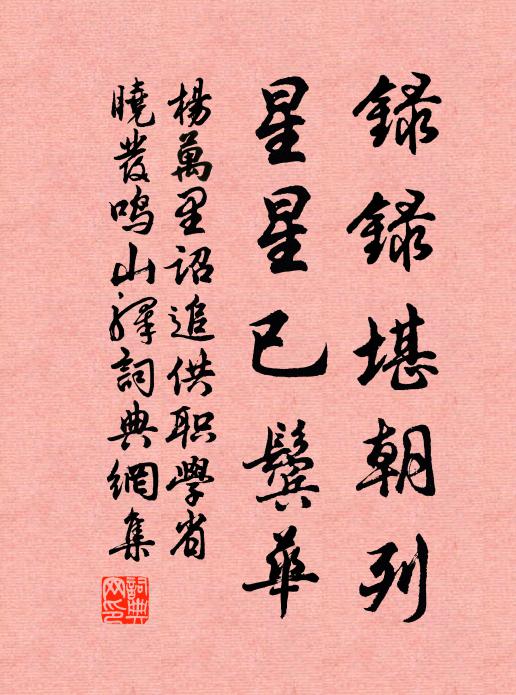 録録堪朝列
星星已鬢華
楊萬里詔追供职學省
曉發鸣山驛詞典網集
詞典网印